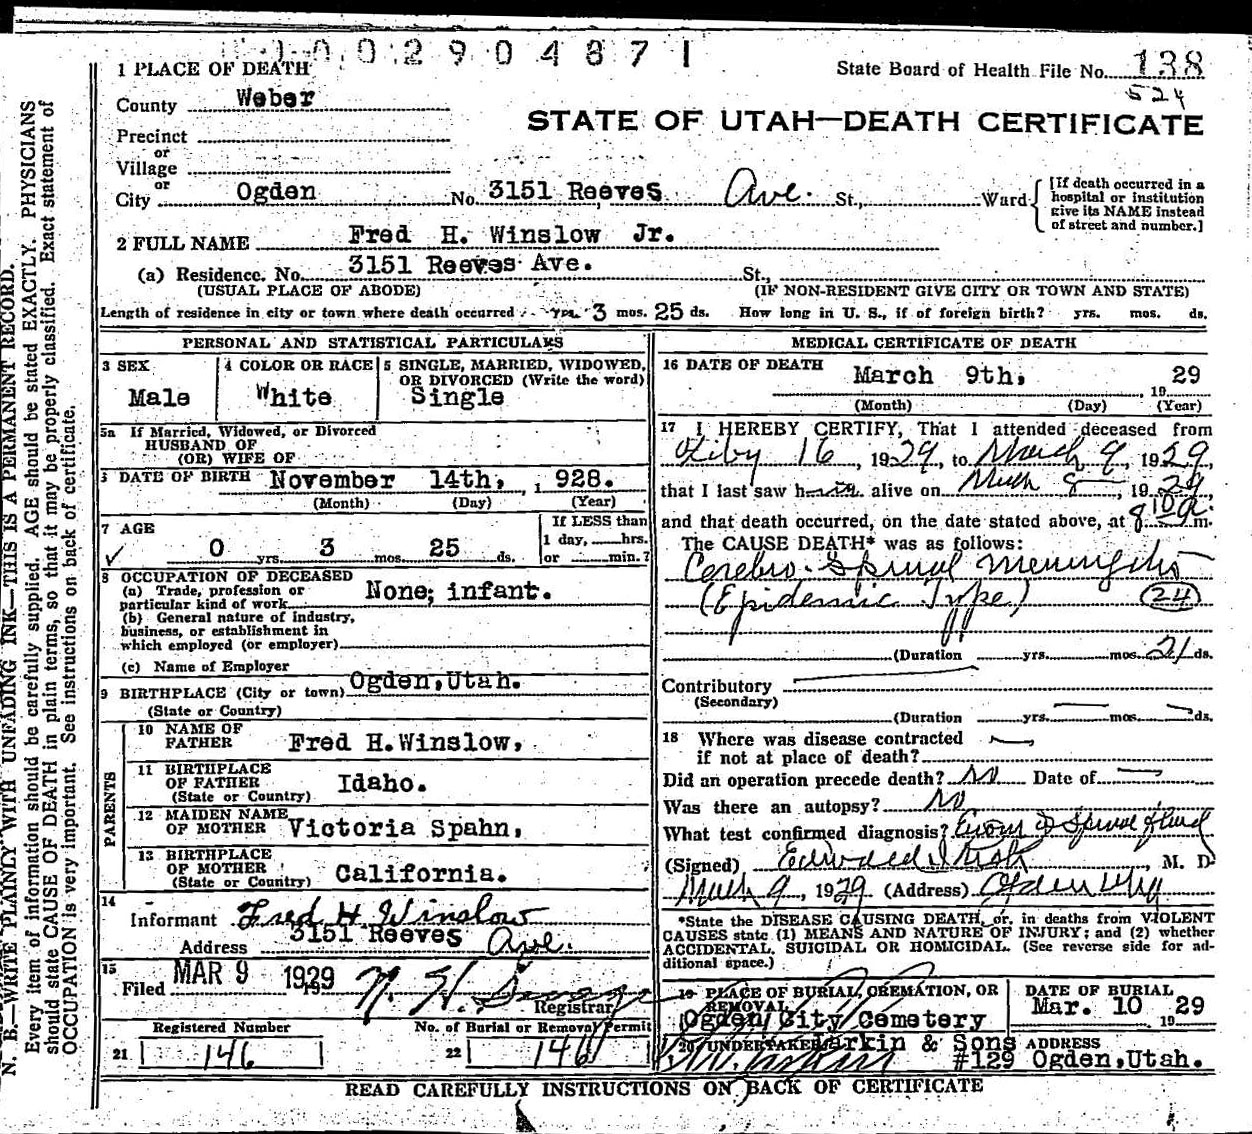 0002904871
1 PLACE OF DEATH
State Board of Health File No. 138
524
County Weber
STATE OF UTAH—DEATH CERTIFICATE
Precinct
or
Village
or
City Ogden No. 3151 Reeves Ave. St., Ward
[If death occurred in a hospital or institution give its NAME instead of street and number.]
2 FULL NAME Fred H. Winslow Jr.
(a) Residence. No. 3151 Reeves Ave. St.,
(USUAL PLACE OF ABODE) (IF NON-RESIDENT GIVE CITY OR TOWN AND STATE)
Length of residence in city or town where death occurred yrs. 3 mos. 25 ds. How long in U. S., if of foreign birth? yrs. mos. ds.
PERSONAL AND STATISTICAL PARTICULARS
3 SEX
Male
4 COLOR OR RACE
White
5 SINGLE, MARRIED, WIDOWED, OR DIVORCED (Write the word)
Single
5a If Married, Widowed, or Divorced
HUSBAND OF
(OR) WIFE OF
DATE OF BIRTH November 14th, 1928.
(Month) (Day) (Year)
7 AGE
0 yrs. 3 mos. 25 ds.
If LESS than
1 day, hrs.
or min.?
8 OCCUPATION OF DECEASED
(a) Trade, profession or particular kind of work None; infant.
(b) General nature of industry,
business, or establishment in
which employed (or employer)
(c) Name of Employer
9 BIRTHPLACE (City or town) Ogden,Utah.
(State or Country)
PARENTS
10 NAME OF FATHER Fred H.Winslow,
11 BIRTHPLACE OF FATHER Idaho.
(State or Country)
12 MAIDEN NAME OF MOTHER Victoria Spahn,
13 BIRTHPLACE OF MOTHER California.
(State or Country)
14
Informant Fred H Winslow
Address 3151 Reeves Ave.
15
Filed MAR 9 1929
Registrar
Registered Number No. of Burial or Removal Permit
21 146 22 146
MEDICAL CERTIFICATE OF DEATH
16 DATE OF DEATH March 9th, 1929
(Month) (Day) (Year)
17 I HEREBY CERTIFY, That I attended deceased from
16, 1929, to March 9, 1929,
that I last saw him alive on March 8, 1929,
and that death occurred, on the date stated above, at 8 10 a. m.
The CAUSE DEATH* was as follows:
Cerebro-Spinal Meningitis
(Epidemic Type) 24
(Duration yrs. mos. 21 ds.
Contributory
(Secondary)
(Duration yrs. mos. ds.
18 Where was disease contracted
if not at place of death?
Did an operation precede death? No Date of
Was there an autopsy? No
What test confirmed diagnosis? Exam of Spinal fluid
(Signed) Edward I. , M. D
March 9, 1929 (Address) Ogden Utah
*State the DISEASE CAUSING DEATH, or, in deaths from VIOLENT
CAUSES state (1) MEANS AND NATURE OF INJURY; and (2) whether
ACCIDENTAL, SUICIDAL OR HOMICIDAL. (See reverse side for ad-
ditional space.)
19 PLACE OF BURIAL, CREMATION, OR REMOVAL
Ogden City Cemetery
DATE OF BURIAL
Mar. 10 1929
20 UNDERTAKER Larkin & Sons
ADDRESS
#129 Ogden,Utah.
READ CAREFULLY INSTRUCTIONS ON BACK OF CERTIFICATE
N. B.—WRITE PLAINLY WITH UNFADING INK—THIS IS A PERMANENT RECORD.
Every item of information should be carefully supplied. AGE should be stated EXACTLY. PHYSICIANS
should state CAUSE OF DEATH in plain terms, so that it may be properly classified. Exact statement of
OCCUPATION is very important. See instructions on back of certificate.